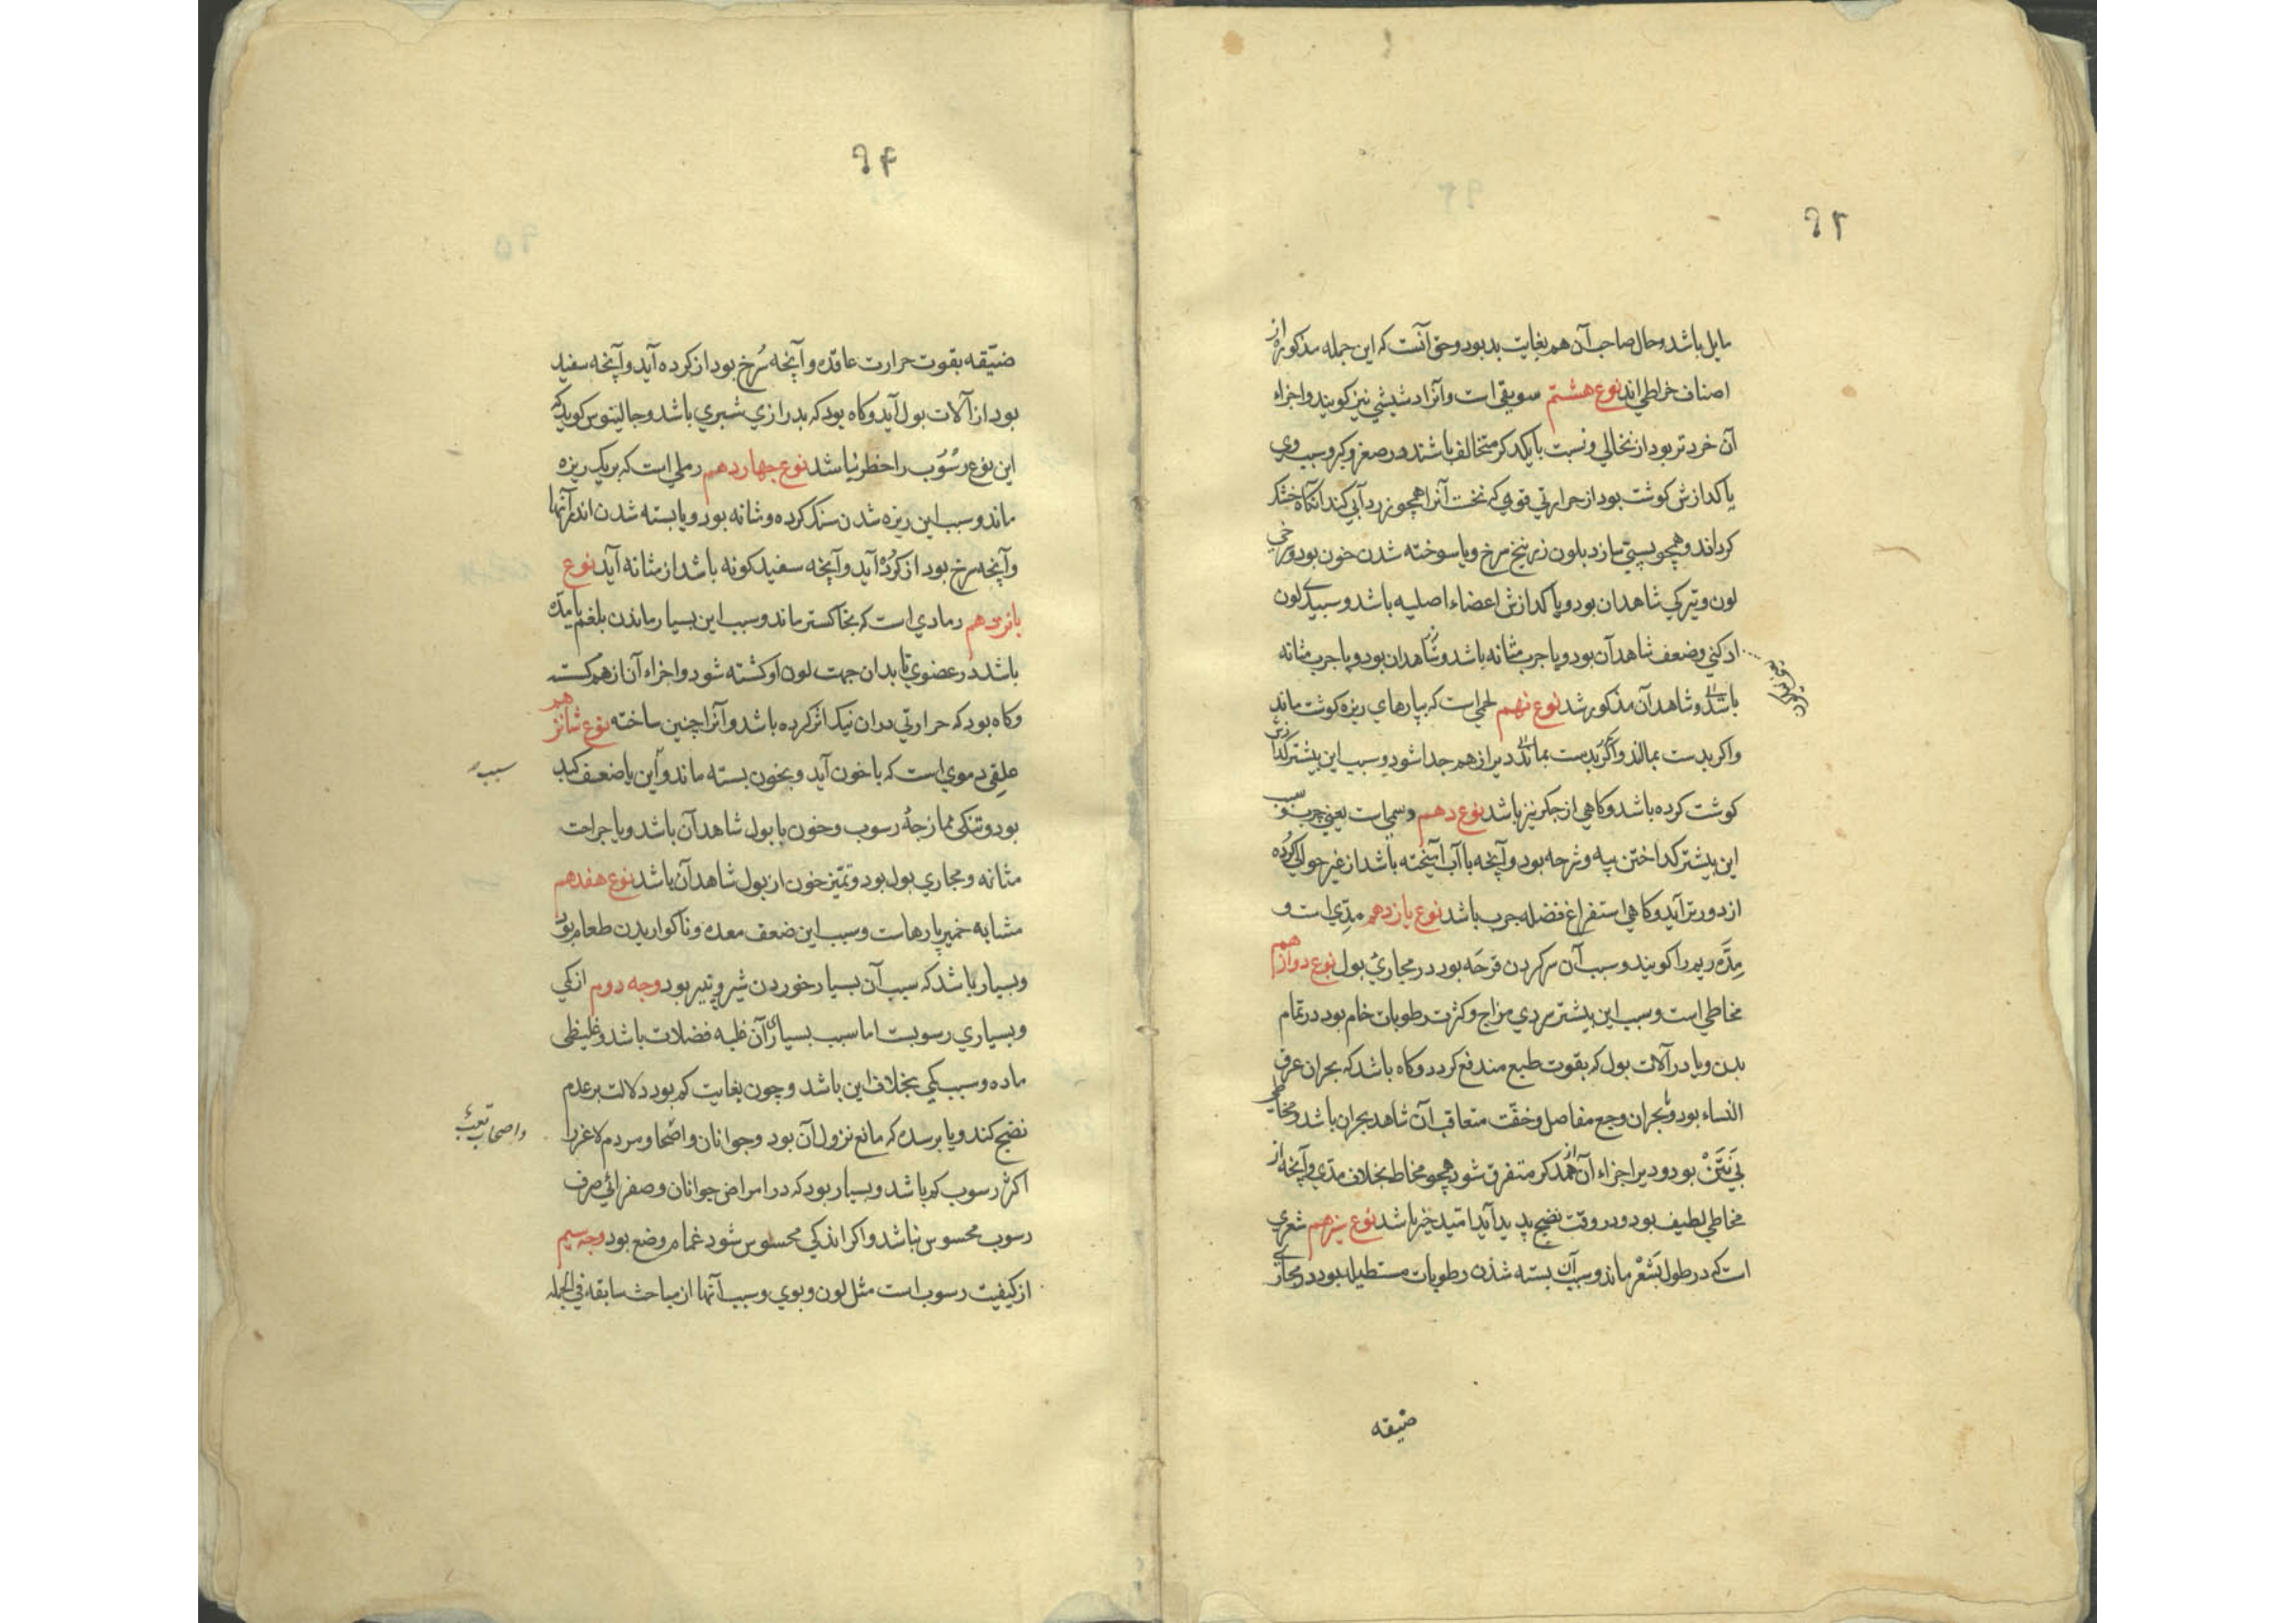 ۹۳
مایل باشد و حال صاحب آن هم بغایت بد بود و حق آنست که این جمله مذکوره از
اصناف خراطی اند نوع هشتم سویقی است و آنرا دشیشی نیز کویند و اجزاء
آن خردتر بود از نخالی و نسبت بایکدکر متخالف باشند در صغر و کبر و سبب وی
یا کدازش کوشت بود از حرارتی قوی که نخست آنرا همچو زردآبی کند آنکاه خشک
کرداند و همچو پستی سازد بلون زرنیخ سرخ و یا سوخته شدن خون بود و سرخی
لون و تیرکی شاهد آن بود و یا کدازش اعضاء اصلیه باشد و سبیدی لون
ادکنی و ضعف شاهد آن بود و یا جرب مثانه باشد و شاهد آن بود و یا جرب مثانه
باشد و شاهد آن مذکور شد نوع نهم لحمی است که بپارهای ریزه کوشت ماند
و اکر بدست بمالند و اکر بدست بمانند دیر از هم جدا شود و سبب این بیشتر کدازش
کوشت کرده باشد و کاهی از جکر نیز باشد نوع دهم دسمی است یعنی چرب و سبب
این بیشتر کداختن پیه و ثرجه بود و آنچه با آب آمیخته باشد از غیر حوالی کرده
از دورتر آید و کاهی استفراغ فضله جرب باشد نوع یازدهم مدّی است و
مِدَّه ریم را کویند و سبب آن سر کردن قرحَه بود در مجاری بول نوع دوازدهم
مخاطی است و سبب این بیشتر سردی مزاج و کثرت رطوبات خام بود در تمام
بدن و یا در آلات بول که بقوت طبع مندفع کردد و کاه باشد که بحران عرق
النساء بود و بحران وجع مفاصل و خفّت متعاقب آن شاهد بحران باشد و مخاطی
بی نَتَنْ بود و دیر اجزاء آن از همدکر متفرق شود همچو مخاط بخلاف مدّی و آنچه از
مخاطی لطیف بود و در وقت نضج پدید آید امید خیر باشد نوع سیزدهم شعری
است که در طول بَشَعْر ماند و سبب آن بسته شدن رطوبات مستطیله بود در مجاری
ضیقه
۹۴
ضیّقه بقوت حرارت عاقده و آنچه سُرخ بود از کرده آید و آنچه سفید
بود از آلات بول آید و کاه بود که بدرازی شبری باشد و جالینوس کوید که
این نوع رسُوب را خطر نباشد نوع چهاردهم رملی است که بریک ریزه
ماند و سبب این ریزه شدن سنک کرده و مثانه بود و یا بسته شدن اندر آنها
و آنچه سرخ بود از کرُده آید و آنچه سفید کونه باشد از مثانه آید نوع
پانزدهم رمادی است که بخاکستر ماند و سبب این بسیار ماندن بلغم یا مدّه
باشد در عضوی تا بدان جهت لون او کشته شود و اجزاء آن از هم کسسته
و کاه بود که حرارتی در آن نیک اثر کرده باشد و آنرا چنین ساخته نوع شانزدهم
علقی دموی است که با خون آید و بخون بسته ماند و این یا ضعف کبد
سبب
بود و تنکی ممازجهٔ رسوب و خون با بول شاهد آن باشد و یا جراحت
مثانه و مجاری بول بود و تمیّز خون از بول شاهد آن باشد نوع هفدهم
مشابه خمیر پارهاست و سبب این ضعف معده و ناکواریدن طعام بود
و بسیار باشد که سبب آن بسیار خوردن شیر و پنیر بود وجه دوم از کمی
و بسیاری رسوبست اما سبب بسیاری آن غلبه فضلات باشد و غلیظی
ماده و سبب کمی بخلاف این باشد و چون بغایت کم بود دلالت بر عدم
نضج کند و یا بر سده که مانع نزول آن بود و جوانان و اصحا و مردم لاغر را
و اصحاب تعب
اکثر رسوب کم باشد و بسیار بود که در امراض جوانان و صفرائی صرف
رسوب محسوس نباشد و اکر اندکی محسوس شود غمام وضع بود وجه سیم
از کیفیت رسوب است مثل لون و بوی و سبب آنها از مباحث سابقه فی الجمله